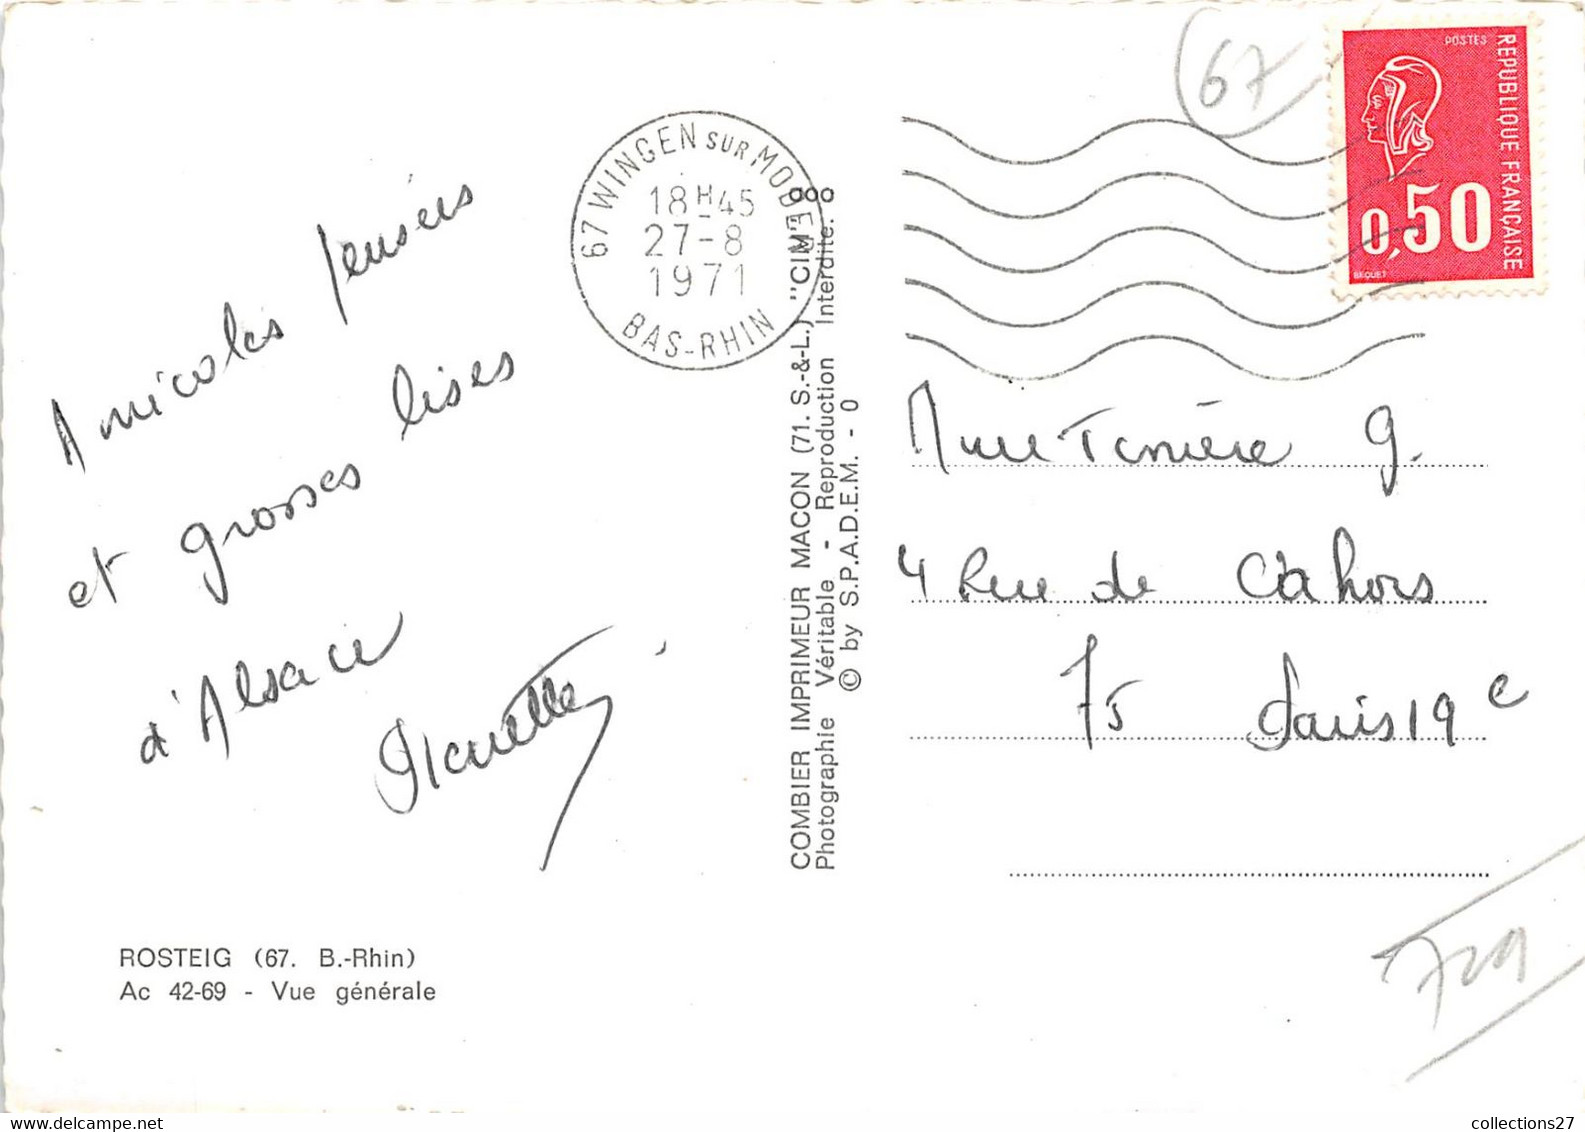 Amicales pensées
et grosses bises
d'Alsace
67 WINGEN SUR MODER
18H45
27-8
1971
BAS-RHIN
67
POSTES
REPUBLIQUE FRANÇAISE
0,50
BEQUET
COMBIER IMPRIMEUR MACON (71. S.-&-L.) "CIM"
Photographie Véritable - Reproduction Interdite.
© by S.P.A.D.E.M. - 0
Mme G.
4 Rue de Cahors
75 Paris 19e
ROSTEIG (67. B.-Rhin)
Ac 42-69 - Vue générale
collections27